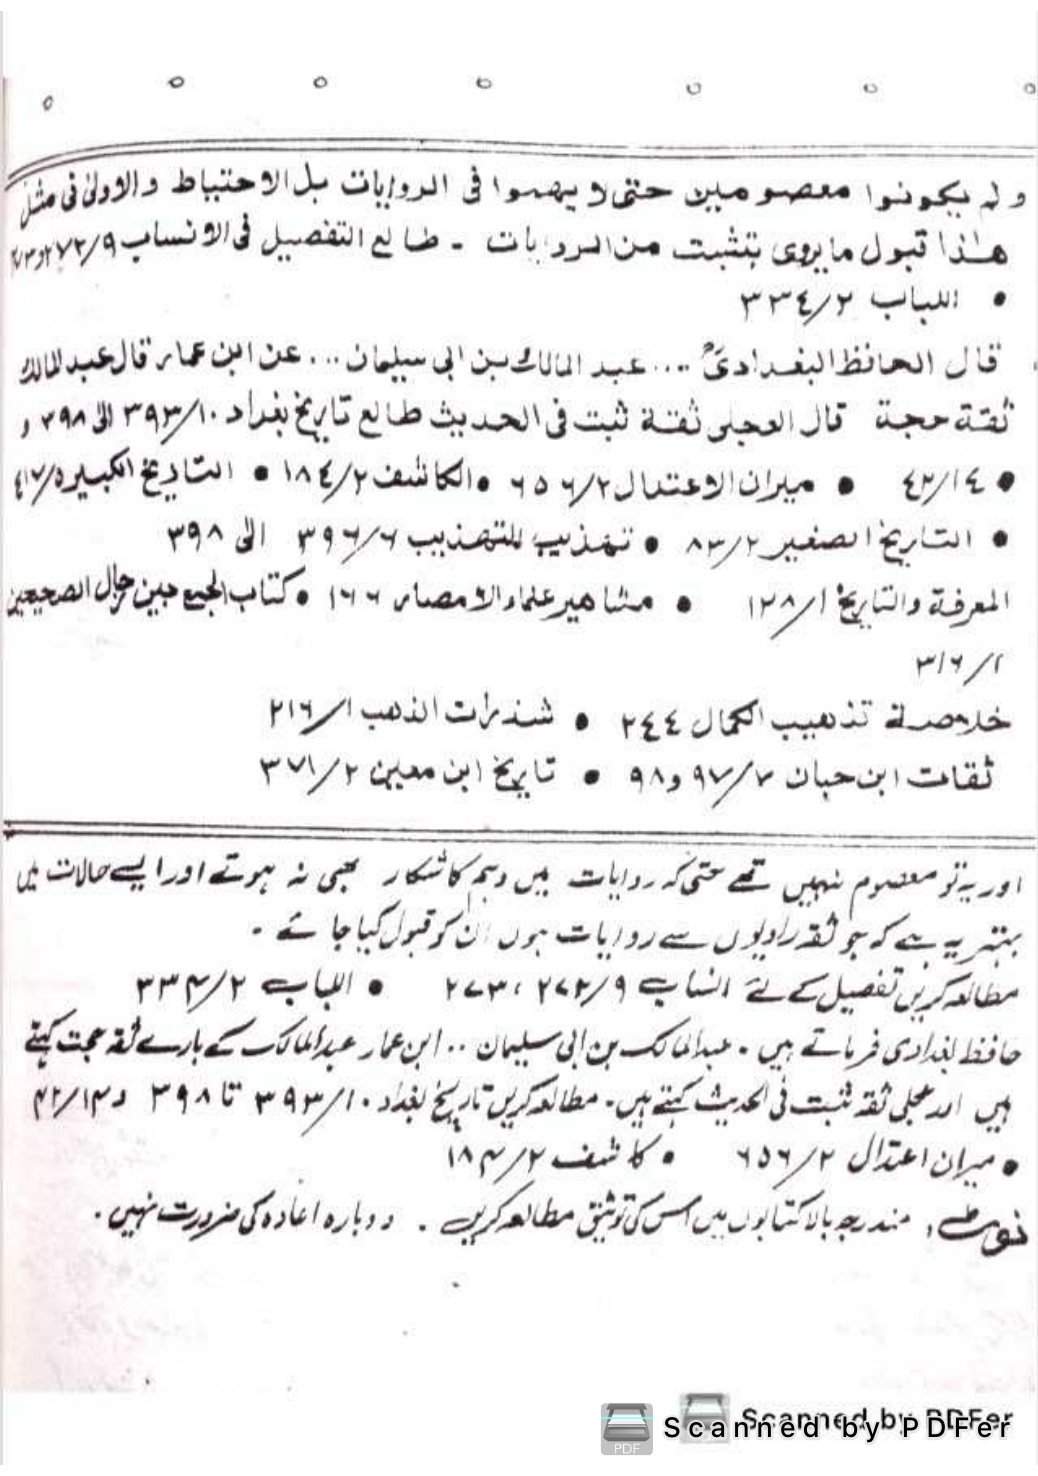 ولم يكونوا معصومين حتى لا يهموا فى الروايات بل الاحتياط والاولى فى مثل
هذا قبول ما يروى بتثبت من الروايات ـ طالع التفصيل فى الانساب ٩/٢٧٢و٢٧٣
• اللباب ٢/٣٣٤
قال الحافظ البغدادىؒ .... عبد المالك بن ابى سليمان ... عن ابن عمار قال عبد المالك
ثقة حجة قال العجلى ثقة ثبت فى الحديث طالع تاريخ بغداد ١٠/٣٩٣ الى ٣٩٨ و
• ١٤/٤٢ • ميزان الاعتدال ٢/٦٥٦ • الكاشف ٢/١٨٤ • التاريخ الكبير ٥/٤١٧
• التاريخ الصغير ٢/٨٣ • تهذيب التهذيب ٦/٣٩٦ الى ٣٩٨
المعرفة والتاريخ ١/١٢٨ • مشاهير علماء الامصار ١٦٦ • كتاب الجمع بين رجال الصحيحين
١/٣١٦
خلاصة تذهيب الكمال ٢٤٤ • شذرات الذهب ١/٢١٦
ثقات ابن حبان ٧/٩٧ و٩٨ • تاريخ ابن معين ٢/٣٧١
اور یہ تو معصوم نہیں تھے حتی کہ روایات میں وہم کا شکار بھی نہ ہوتے اور ایسے حالات میں
بہتر یہ ہے کہ جو ثقہ راویوں سے روایات ہوں ان کو قبول کیا جائے ۔
مطالعہ کریں تفصیل کے لئے انساب ۹/۲۷۲ ، ۲۷۳ • اللباب ۲/۳۳۴
حافظ بغدادی فرماتے ہیں ۔ عبدالمالک بن ابی سلیمان .. ابن عمار عبدالمالک کے بارے ثقہ حجت کہتے
ہیں اور عجلی ثقہ ثبت فی الحدیث کہتے ہیں ۔ مطالعہ کریں تاریخ بغداد ۱۰/۳۹۳ تا ۳۹۸ و ۱۴/۴۲
• میزان اعتدال ۲/۶۵۶ • کاشف ۲/۱۸۴
نوٹ : مندرجہ بالا کتابوں میں اس کی توثیق مطالعہ کریں ۔ دوبارہ اعادہ کی ضرورت نہیں ۔
Scanned by PDFer
Scanned by PDFer
PDF